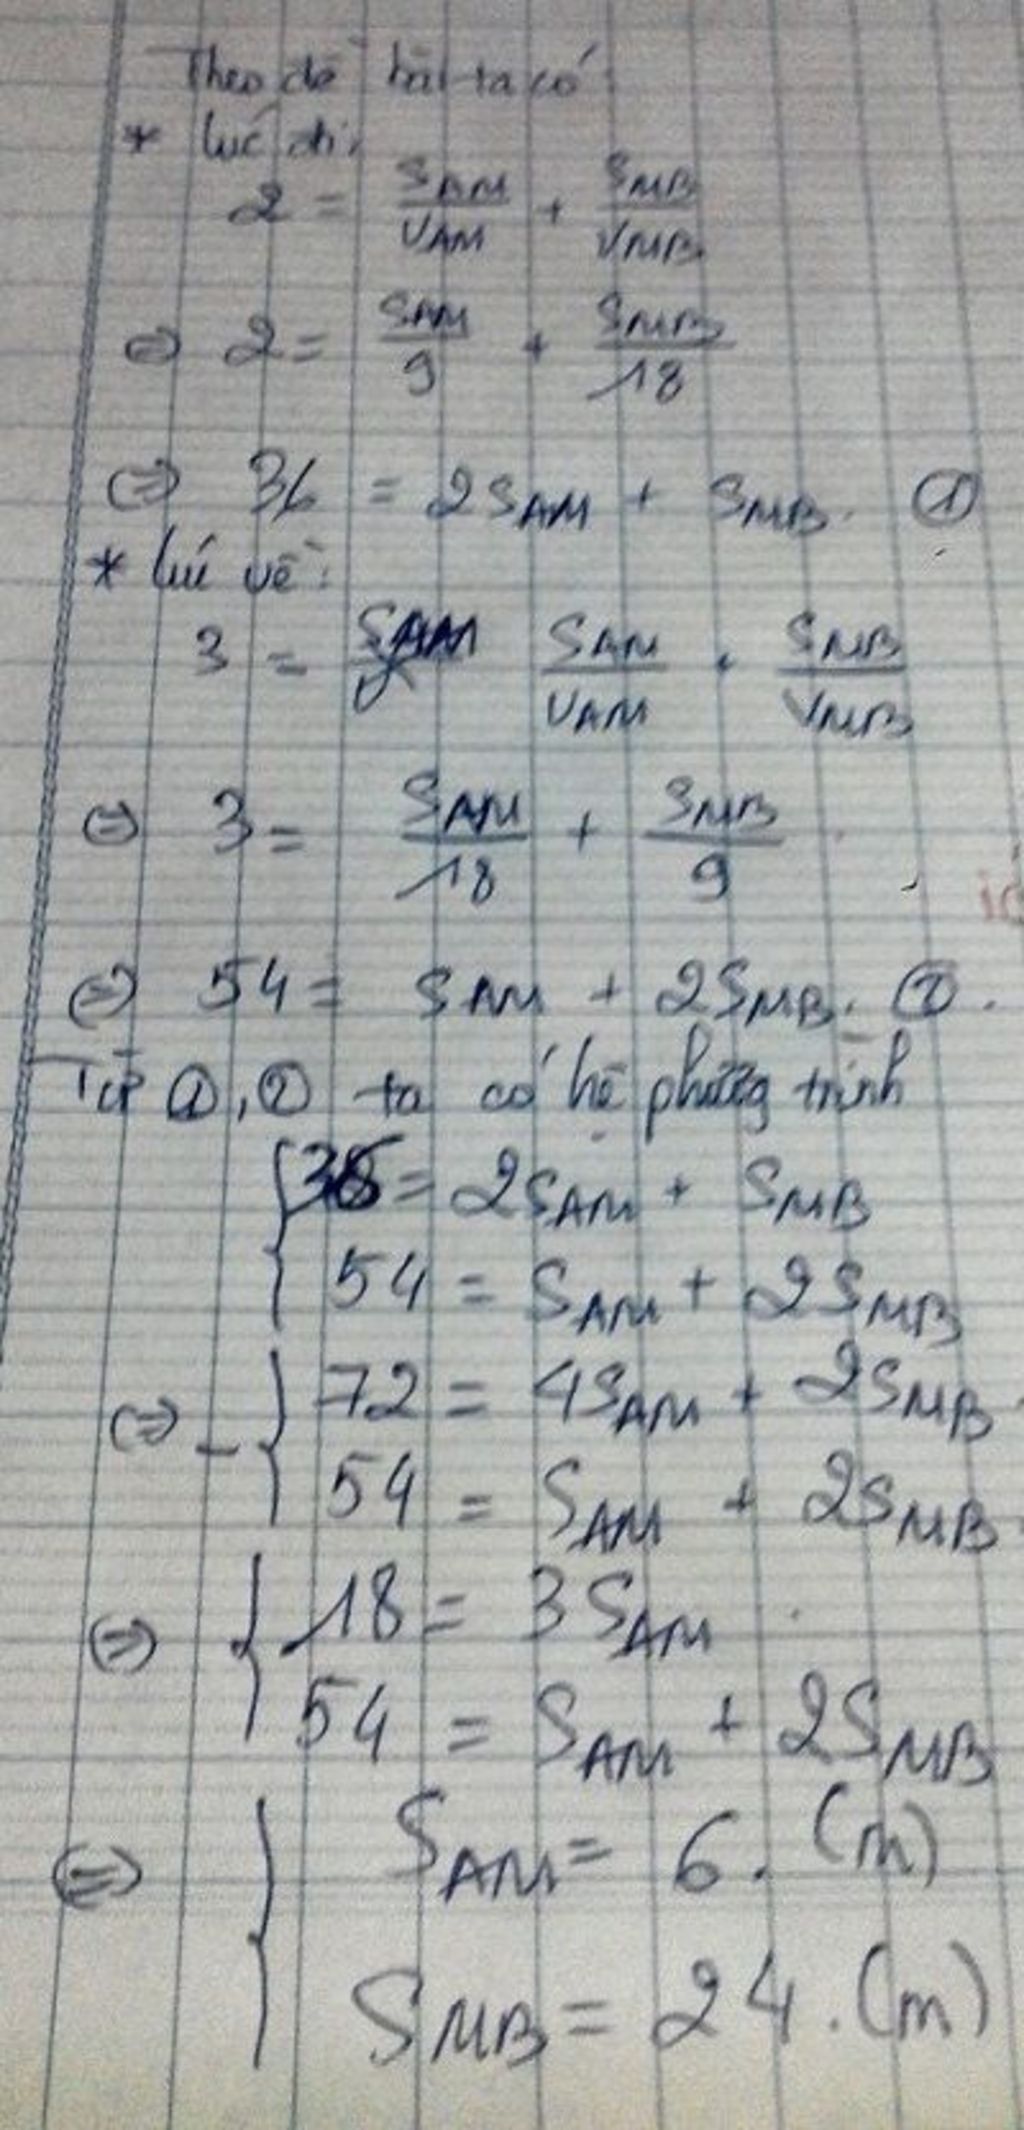 Theo đề bài ta có
* lúc đi:
2 = S_AM/V_AM + S_MB/V_MB
⇔ 2 = S_AM/9 + S_MB/18
⇔ 36 = 2S_AM + S_MB. ①
* lúc về:
3 = S_AM/V_AM + S_MB/V_MB
⇔ 3 = S_AM/18 + S_MB/9
⇔ 54 = S_AM + 2S_MB. ②.
Từ ①, ② ta có hệ phương trình
{ 36 = 2S_AM + S_MB
54 = S_AM + 2S_MB
⇔ - { 72 = 4S_AM + 2S_MB
54 = S_AM + 2S_MB
⇔ { 18 = 3S_AM
54 = S_AM + 2S_MB
⇔ { S_AM = 6. (m)
S_MB = 24. (m)